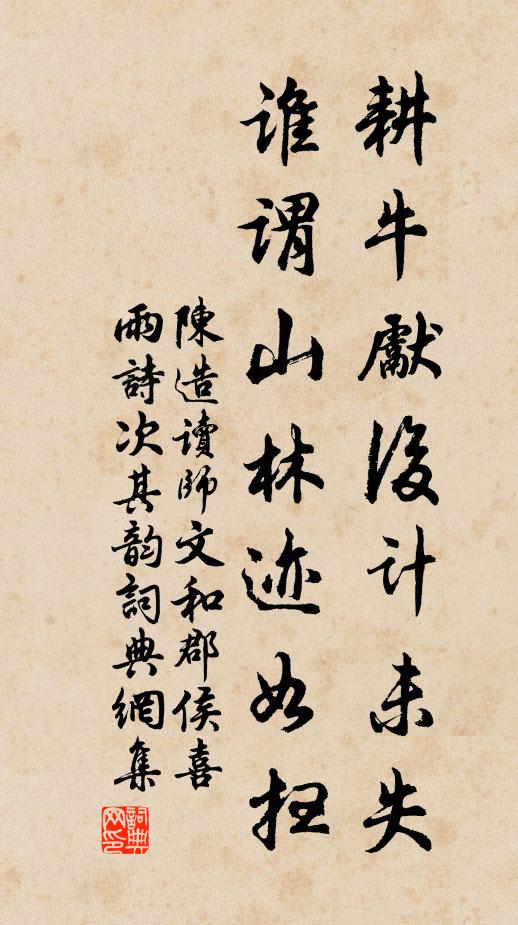 耕牛獻後計未失
誰謂山林迹如扭
陳造讀師文和郡侯喜
雨詩次其韵詞典網集
詞典网印